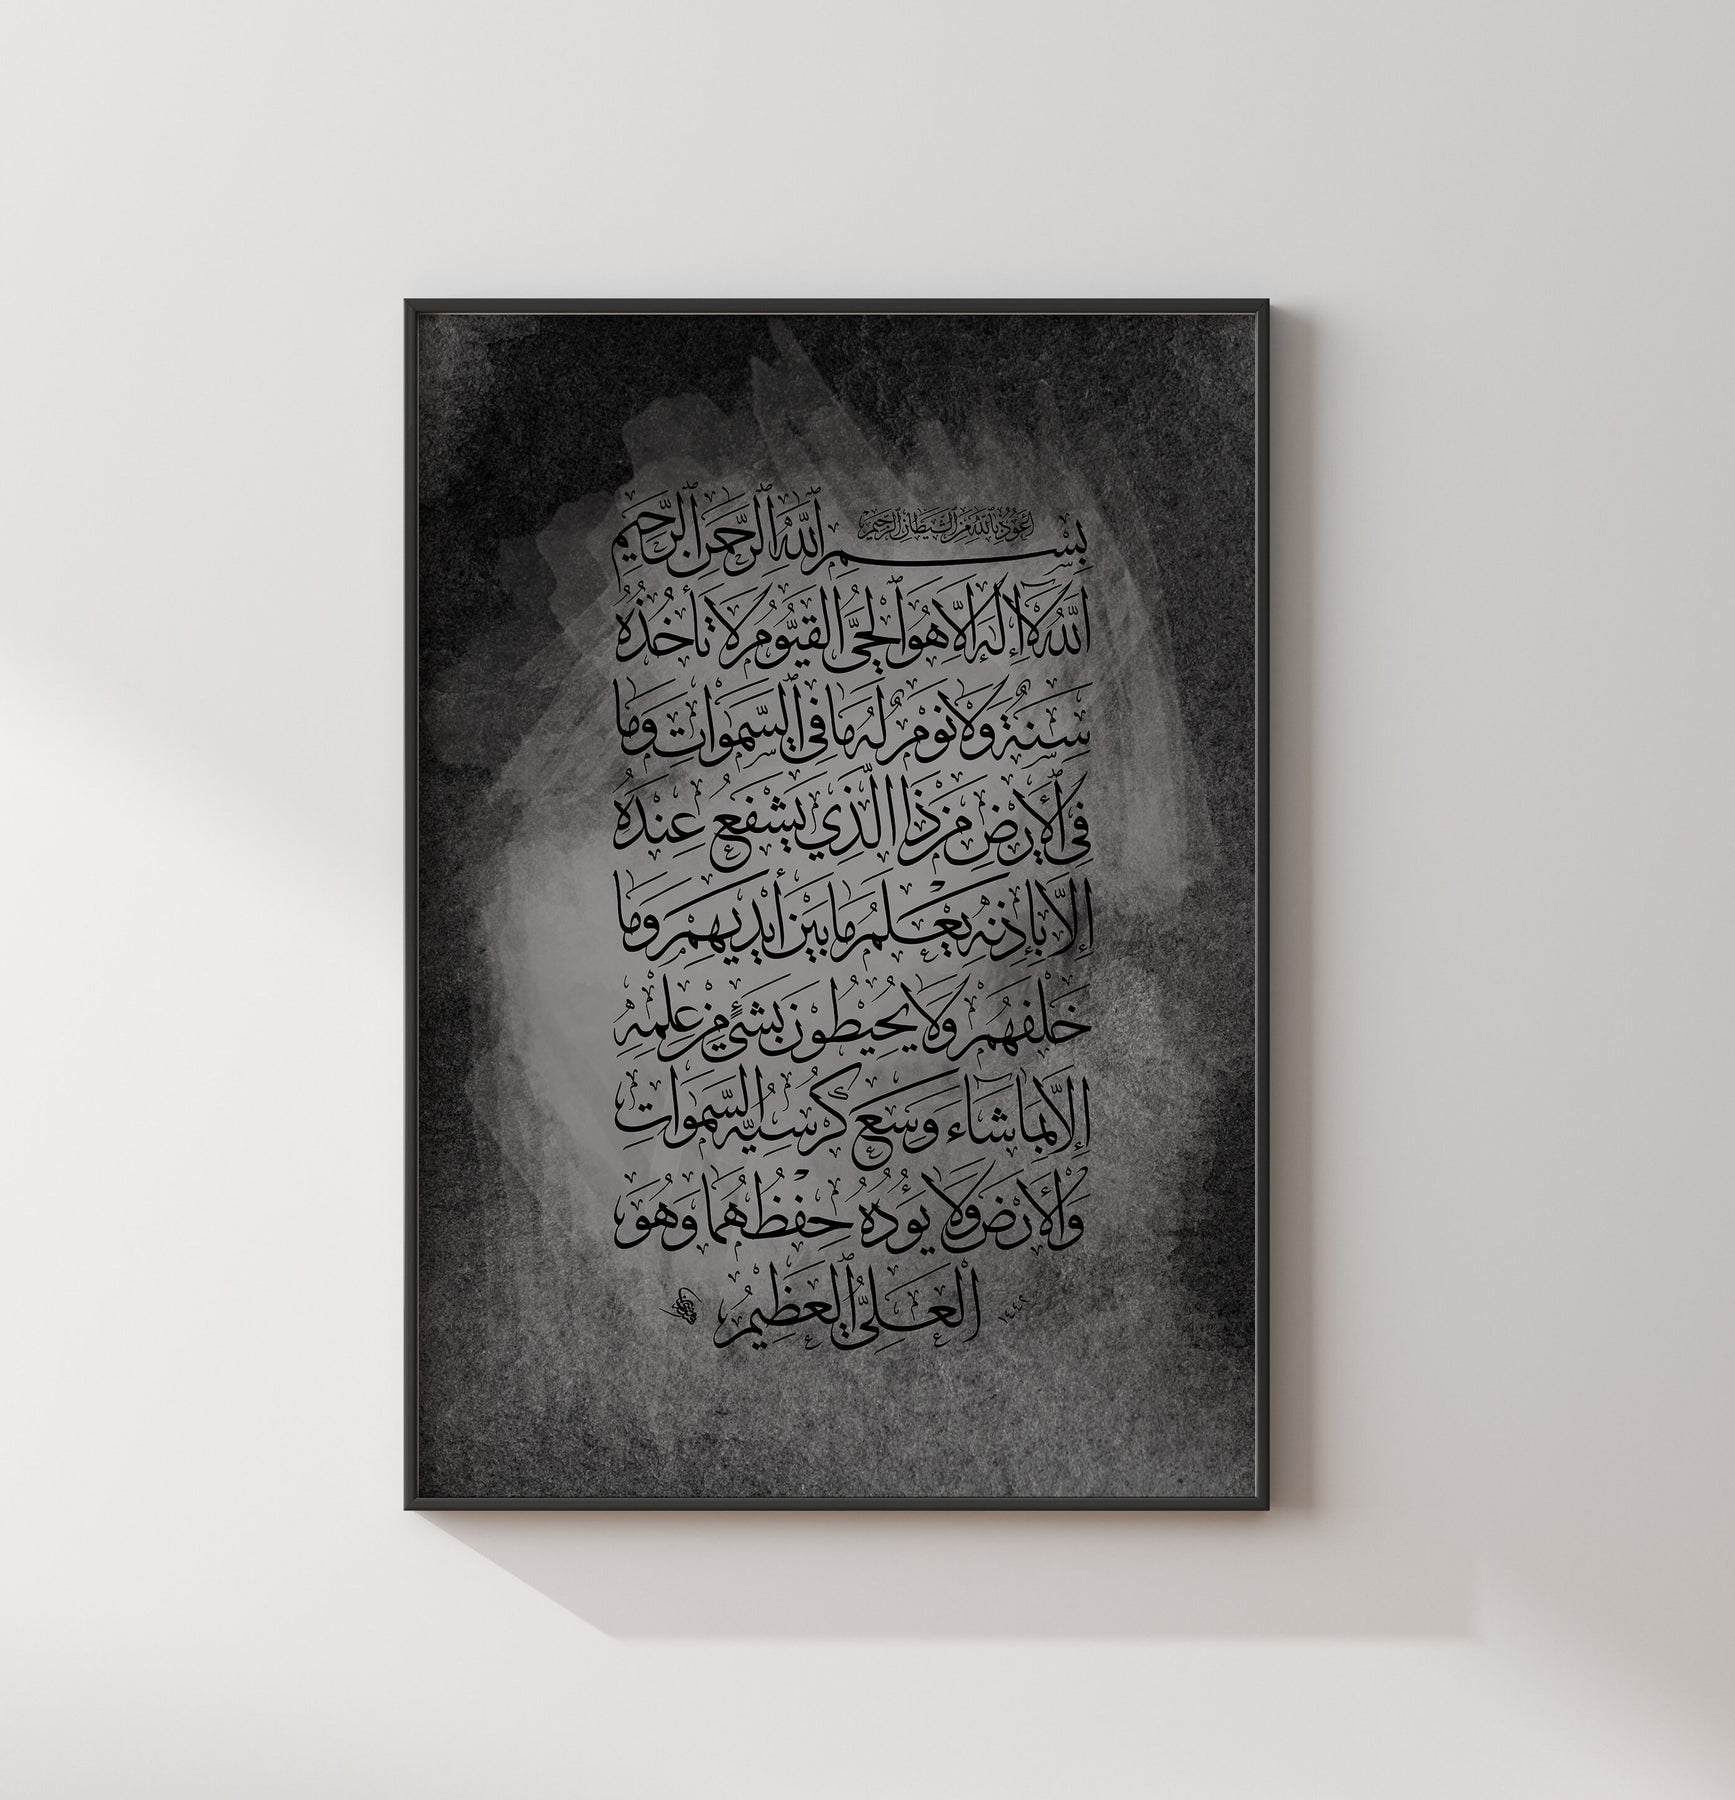 أعوذ بالله من الشيطان الرجيم
بِسْمِ اللَّهِ الرَّحْمَنِ الرَّحِيمِ
اَللَّهُ لَا إِلَهَ إِلَّا هُوَ الْحَيُّ الْقَيُّومُ لَا تَأْخُذُهُ
سِنَةٌ وَلَا نَوْمٌ لَهُ مَا فِي السَّمَوَاتِ وَمَا
فِي الْأَرْضِ مَنْ ذَا الَّذِي يَشْفَعُ عِنْدَهُ
إِلَّا بِإِذْنِهِ يَعْلَمُ مَا بَيْنَ أَيْدِيهِمْ وَمَا
خَلْفَهُمْ وَلَا يُحِيطُونَ بِشَيْءٍ مِنْ عِلْمِهِ
إِلَّا بِمَا شَاءَ وَسِعَ كُرْسِيُّهُ السَّمَوَاتِ
وَالْأَرْضَ وَلَا يَؤُدُهُ حِفْظُهُمَا وَهُوَ
الْعَلِيُّ الْعَظِيمُ
١٤٤٢